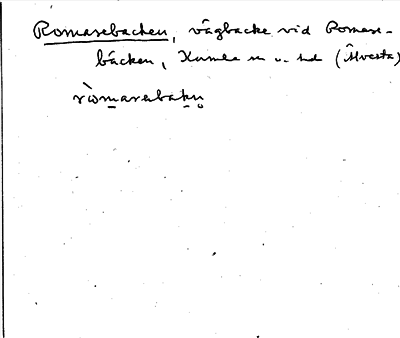 Romarebacken, vägbacke vid Romare-
bäcken, Kumla sn o. hd (Älvesta)
ròmarebakn̥